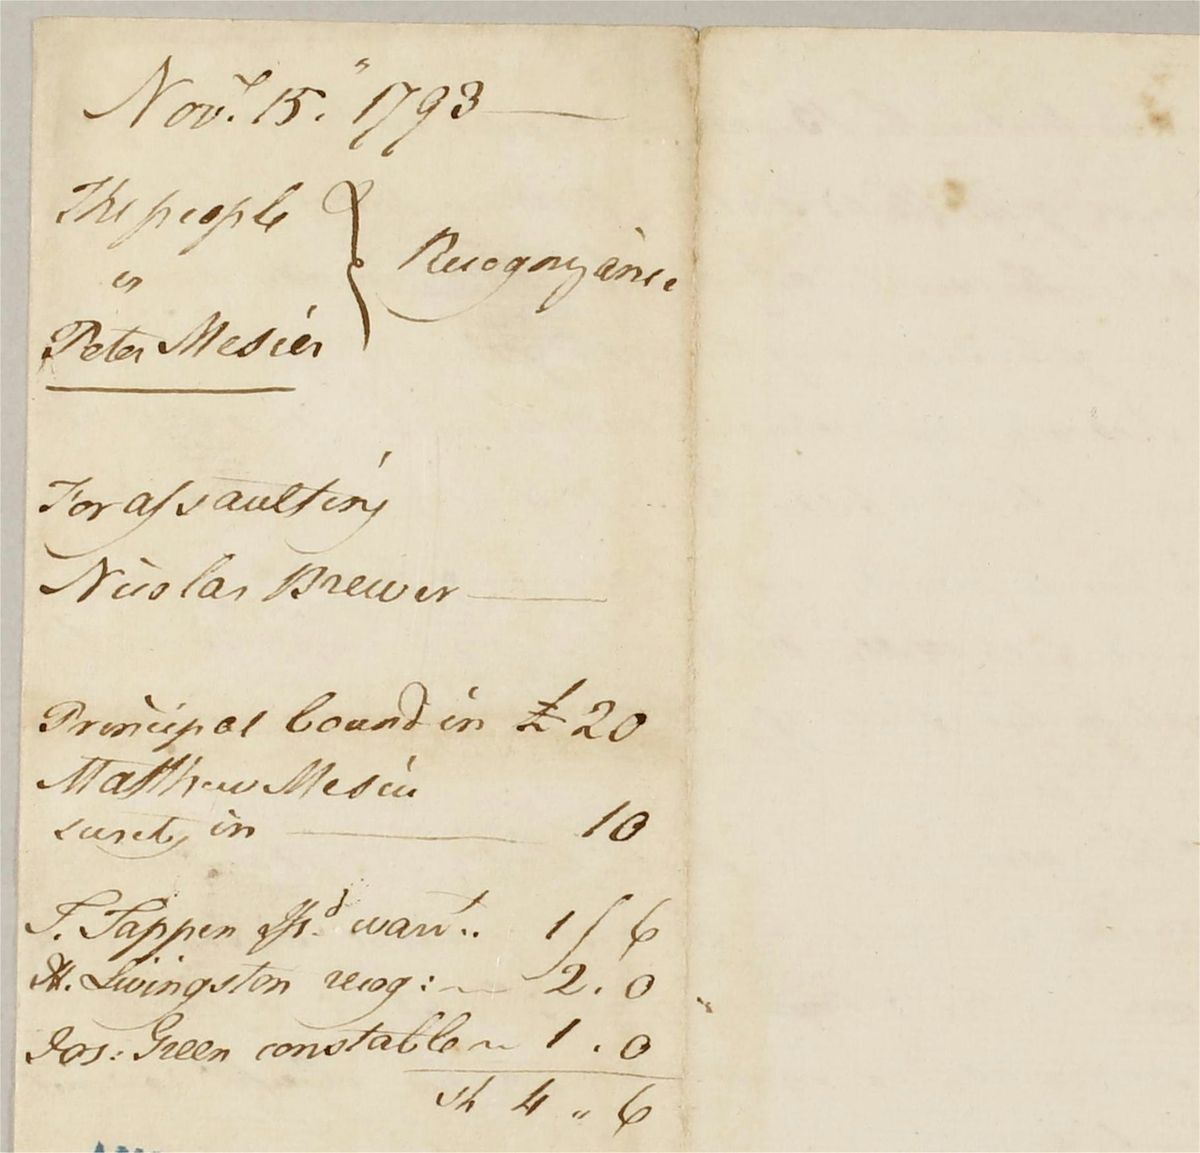 Novr. 15. 1793
The people
vs
Peter Mesier
Recognyance
For assaulting
Nicolas Brewer
Principal bound in £20
Matthew Mesier
surety in 10
T. Tappen Issd warrt. 1/6
H. Livingston recog: 2.0
Jos: Green constable 1.0
sh 4 „ 6